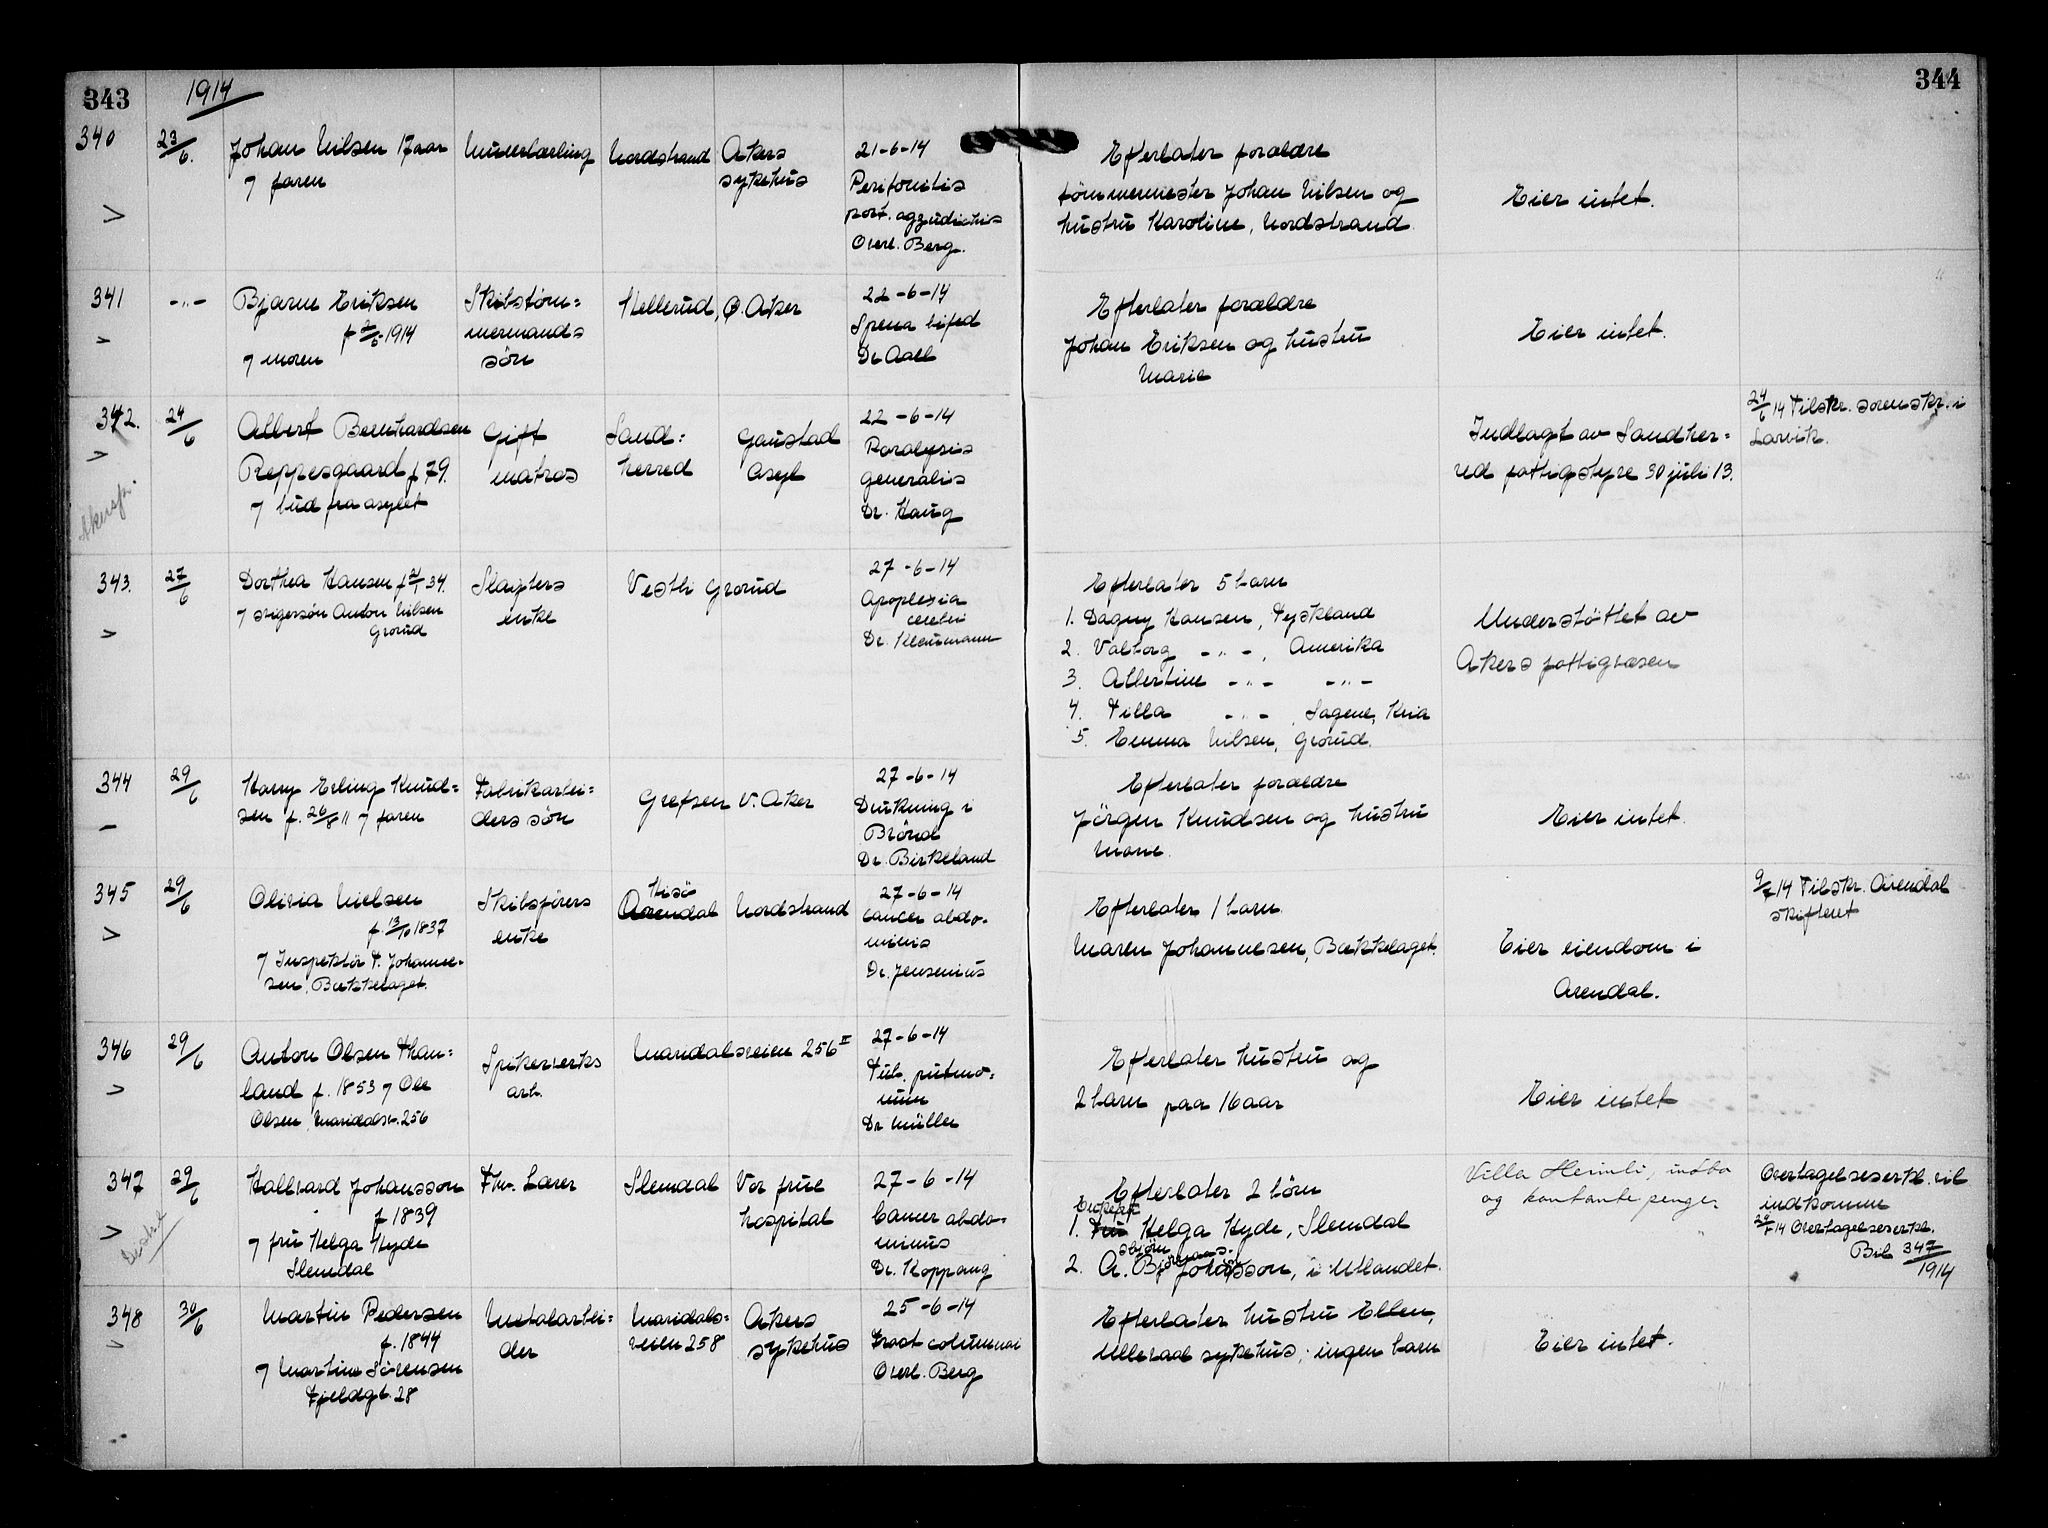 343
1914
344
340
23/6.
Johan Nilsen 17 aar
7 faren
Murerlærling
Nordstrand
Akers
sykehus
21-6-14
Peritonitis
port. appendicitis
Overl. Berg.
Efterlater forældre
tömmermester Johan Nilsen og
hustru Karoline, Nordstrand
Eier intet.
341
-"-
Bjarne Eriksen
f 2/6-1914
7 moren
Skibstöm=
mermands
sön
Hellerud, Ø. Aker
22-6-14
Spina bifid
Dr Aall
Efterlater forældre
Johan Eriksen og hustru
Marie
Eier intet.
342.
24/6
Albert Bernhardsen
Reppesgaard f 79.
7 bud fra asylet
Gift
matros
Sand=
herred
Gaustad
Asyl
22-6-14
Paralysis
generalis
Dr. Haug
Indlagt av Sandher=
red fattigstyre 30 juli 13.
24/6 14 Tilskr. sorenskr. i
Larvik.
Akersfr.
343.
27/6
Dorthea Hansen f 21/1 34.
7 svigersön Anton Nilsen
Grorud
Slagters
enke
Vestli Grorud
27-6-14
Apoplexia
cerebri
Dr. Klausmann
Efterlater 5 barn
1. Dagny Hansen, Tyskland
2. Valborg -"-, Amerika
3. Albertine -"- -"-
4. Tilla -"-, Sagene, Kria
5. Emma Nilsen, Grorud.
Understöttet av
Akers fattigvæsen
344
29/6
Harry Erling Knud=
sen f. 26/8 11 7 faren
Fabrikarbei=
ders sön
Grefsen V. Aker
27-6-14
Drukning i
Brönd
Dr. Birkeland
Efterlater forældre
Jörgen Knudsen og hustru
Marie.
Eier intet.
345
29/6
Olivia Nielsen
f 13/10 1837
7 Inspektör T. Johannes-
sen, Bækkelaget.
Skibsförers
enke
Hisö
Arendal
Nordstrand
27-6-14
Cancer abdo-
minis
Dr. Jensenius
Efterlater 1 barn.
Maren Johannesen, Bækkelaget.
Eier eiendom i
Arendal.
9/7 14 Tilskr. Arendal
skifteret
346
29/6
Anton Olsen Than=
land f. 1853 7 Ole
Olsen, Maridalsv. 256
Spikerverks
arb.
Maridalsveien 256 II
27-6-14
Tub. pulmo-
num
Dr Müller
Efterlater hustru og
2 barn paa 16 aar
Eier intet
347
29/6
Hallvard Johansson
f 1839
7 fru Helga Hyde
Slemdal
Fhv. Lærer
Slemdal
Vor frue
hospital
27-6-14
Cancer abdo-
minus
Dr. Koppang
Efterlater 2 börn
1. Fru Helga Hyde, Slemdal
2. A. Johansson, i Utlandet.
Villa Heimli, indbo
og kontante penge.
Overtagelseserkl. vil
indkomme
14 Overtagelseserkl.
Bil 347/1914
348
30/6
Martin Pedersen
f. 1844
7 Martin Sörensen
Fjeldgt. 28
Metalarbei=
der
Maridals=
veien 258
Akers
sykehus
25-6-14
Fract columnai
Overl. Berg
Efterlater hustru Ellen,
Ulleraal sykehus; ingen barn
Eier intet.